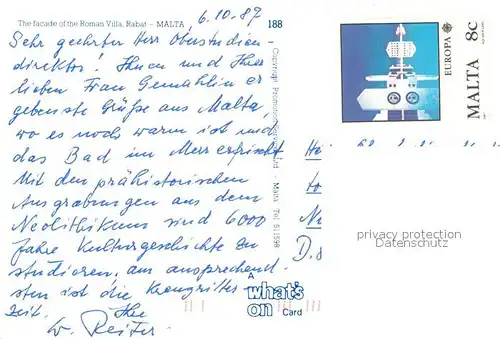 The facade of the Roman Villa, Rabat – MALTA
188
6.10.87
Sehr geehrter Herr Oberstudien-
direktor! Ihnen und Ihrer
lieben Frau Gemahlin er
gebenste Grüße aus Malta,
wo es noch warm ist und
das Bad im Meer erfrischt
Mit den prähistorischen
Ausgrabungen aus dem
Neolithikum sind 6000
Jahre Kulturgeschichte zu
studieren, am ansprechend-
sten ist die Kreuzritter-
zeit. Ihr
W. Reiter
Malta Tel: 511599
EUROPA
MALTA 8c
D.
privacy protection
Datenschutz
A
what's
on Card